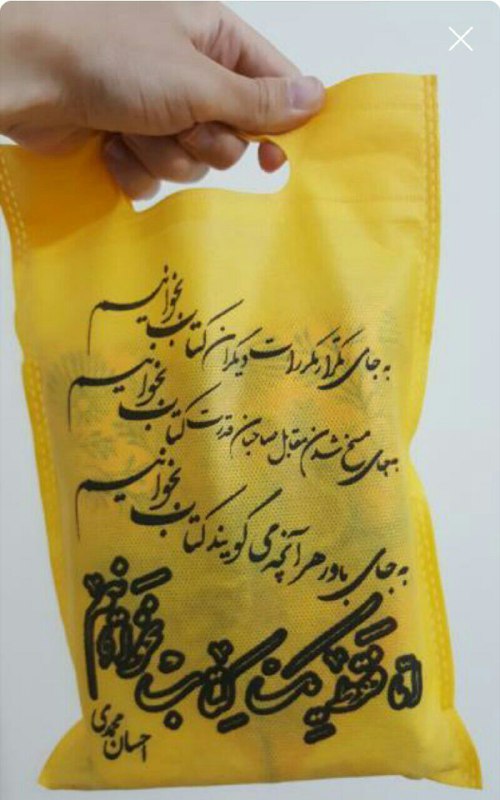 به جای تکرار مکررات دیگران کتاب بخوانیم
به جای مسخ شدن مقابل صاحبان قدرت کتاب بخوانیم
به جای باور هر آنچه می گویند کتاب بخوانیم
اما فقط یک کتاب نخوانیم
احسان محمدی